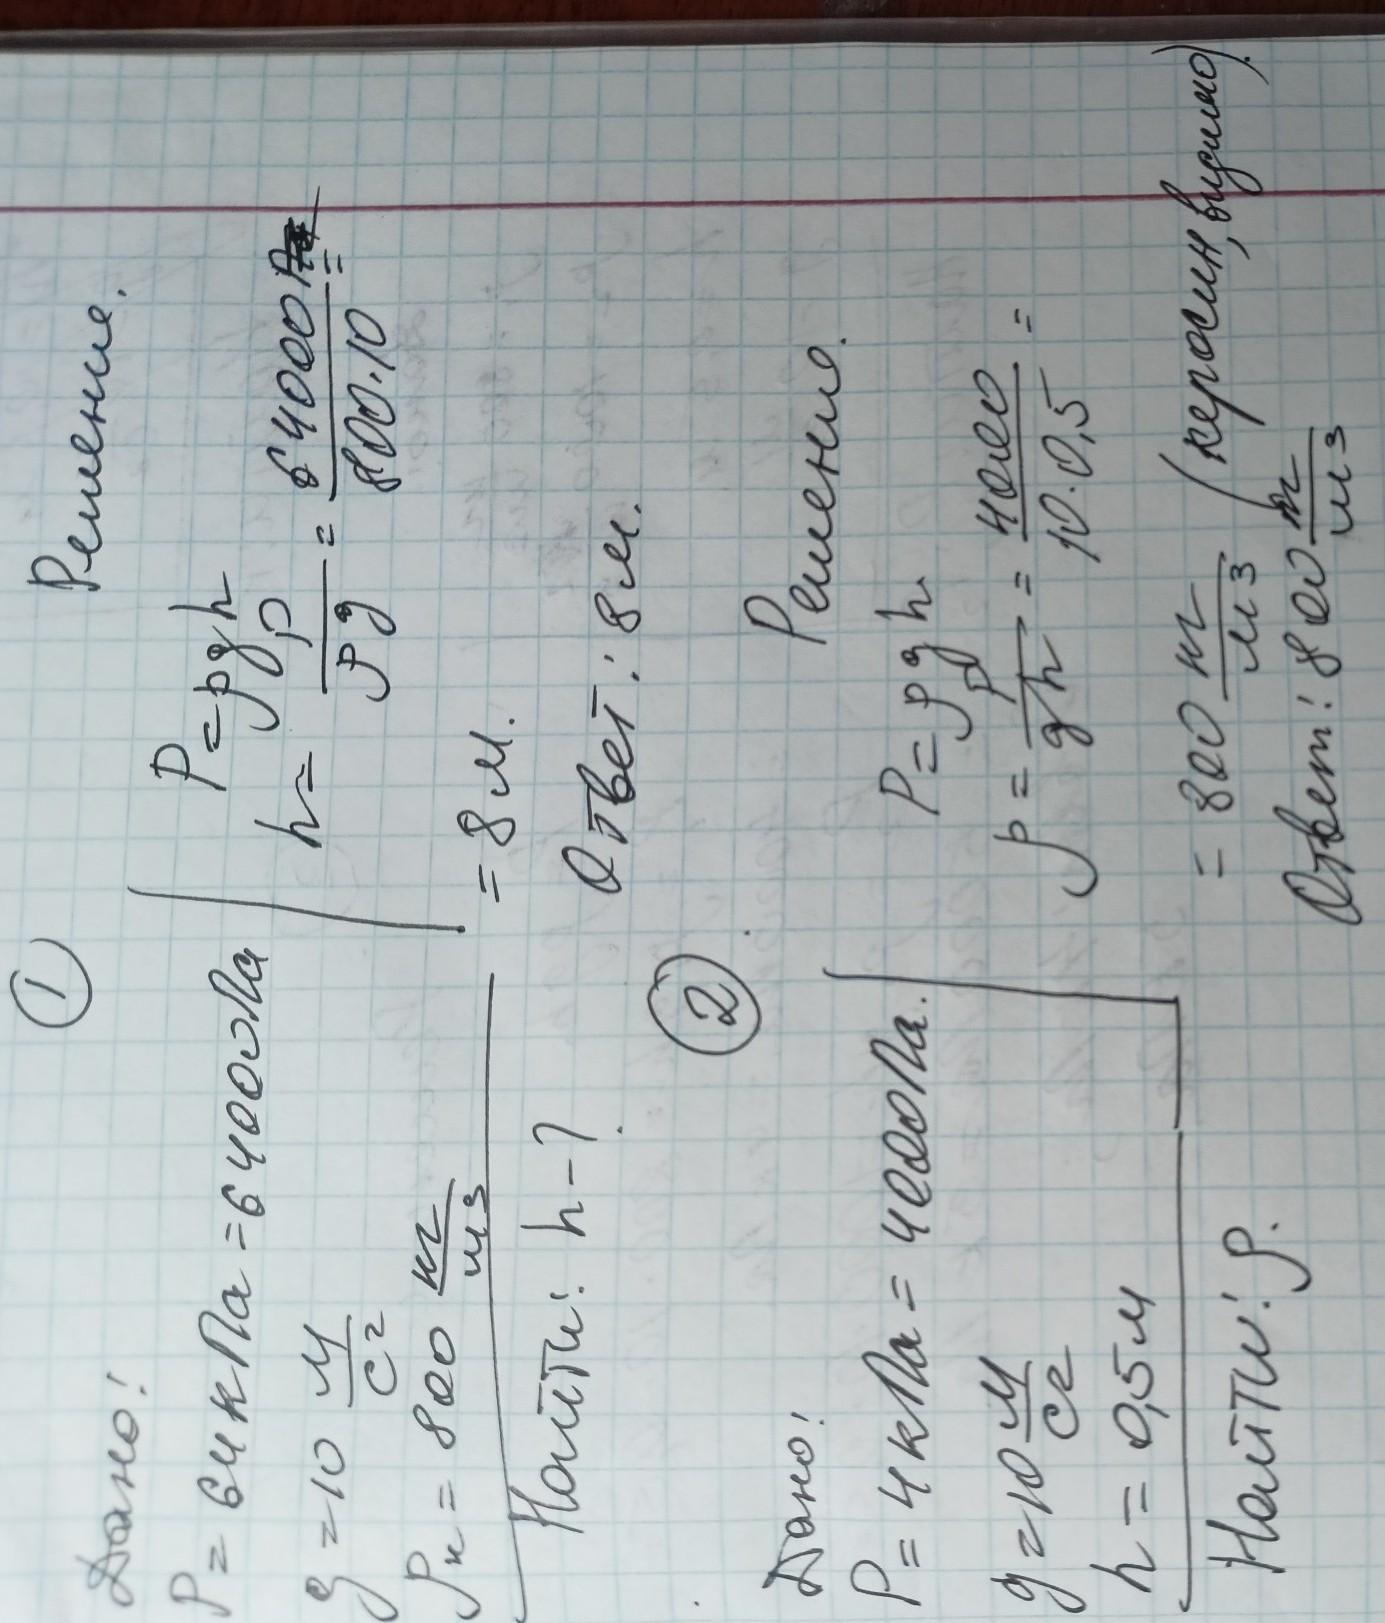 ①
Дано:
P = 64 кПа = 64000Па
g = 10 м/с²
ρк = 800 кг/м³
Найти: h - ?
Решение.
P = ρgh
h = P/ρg = 64000/800·10 =
= 8 м.
Ответ: 8 м.
②
Дано:
P = 4 кПа = 4000Па.
g = 10 м/с²
h = 0,5 м
Найти: ρ.
Решение.
P = ρgh
ρ = P/gh = 4000/10·0,5 =
= 800 кг/м³ (керосин, видимо).
Ответ: 800 кг/м³